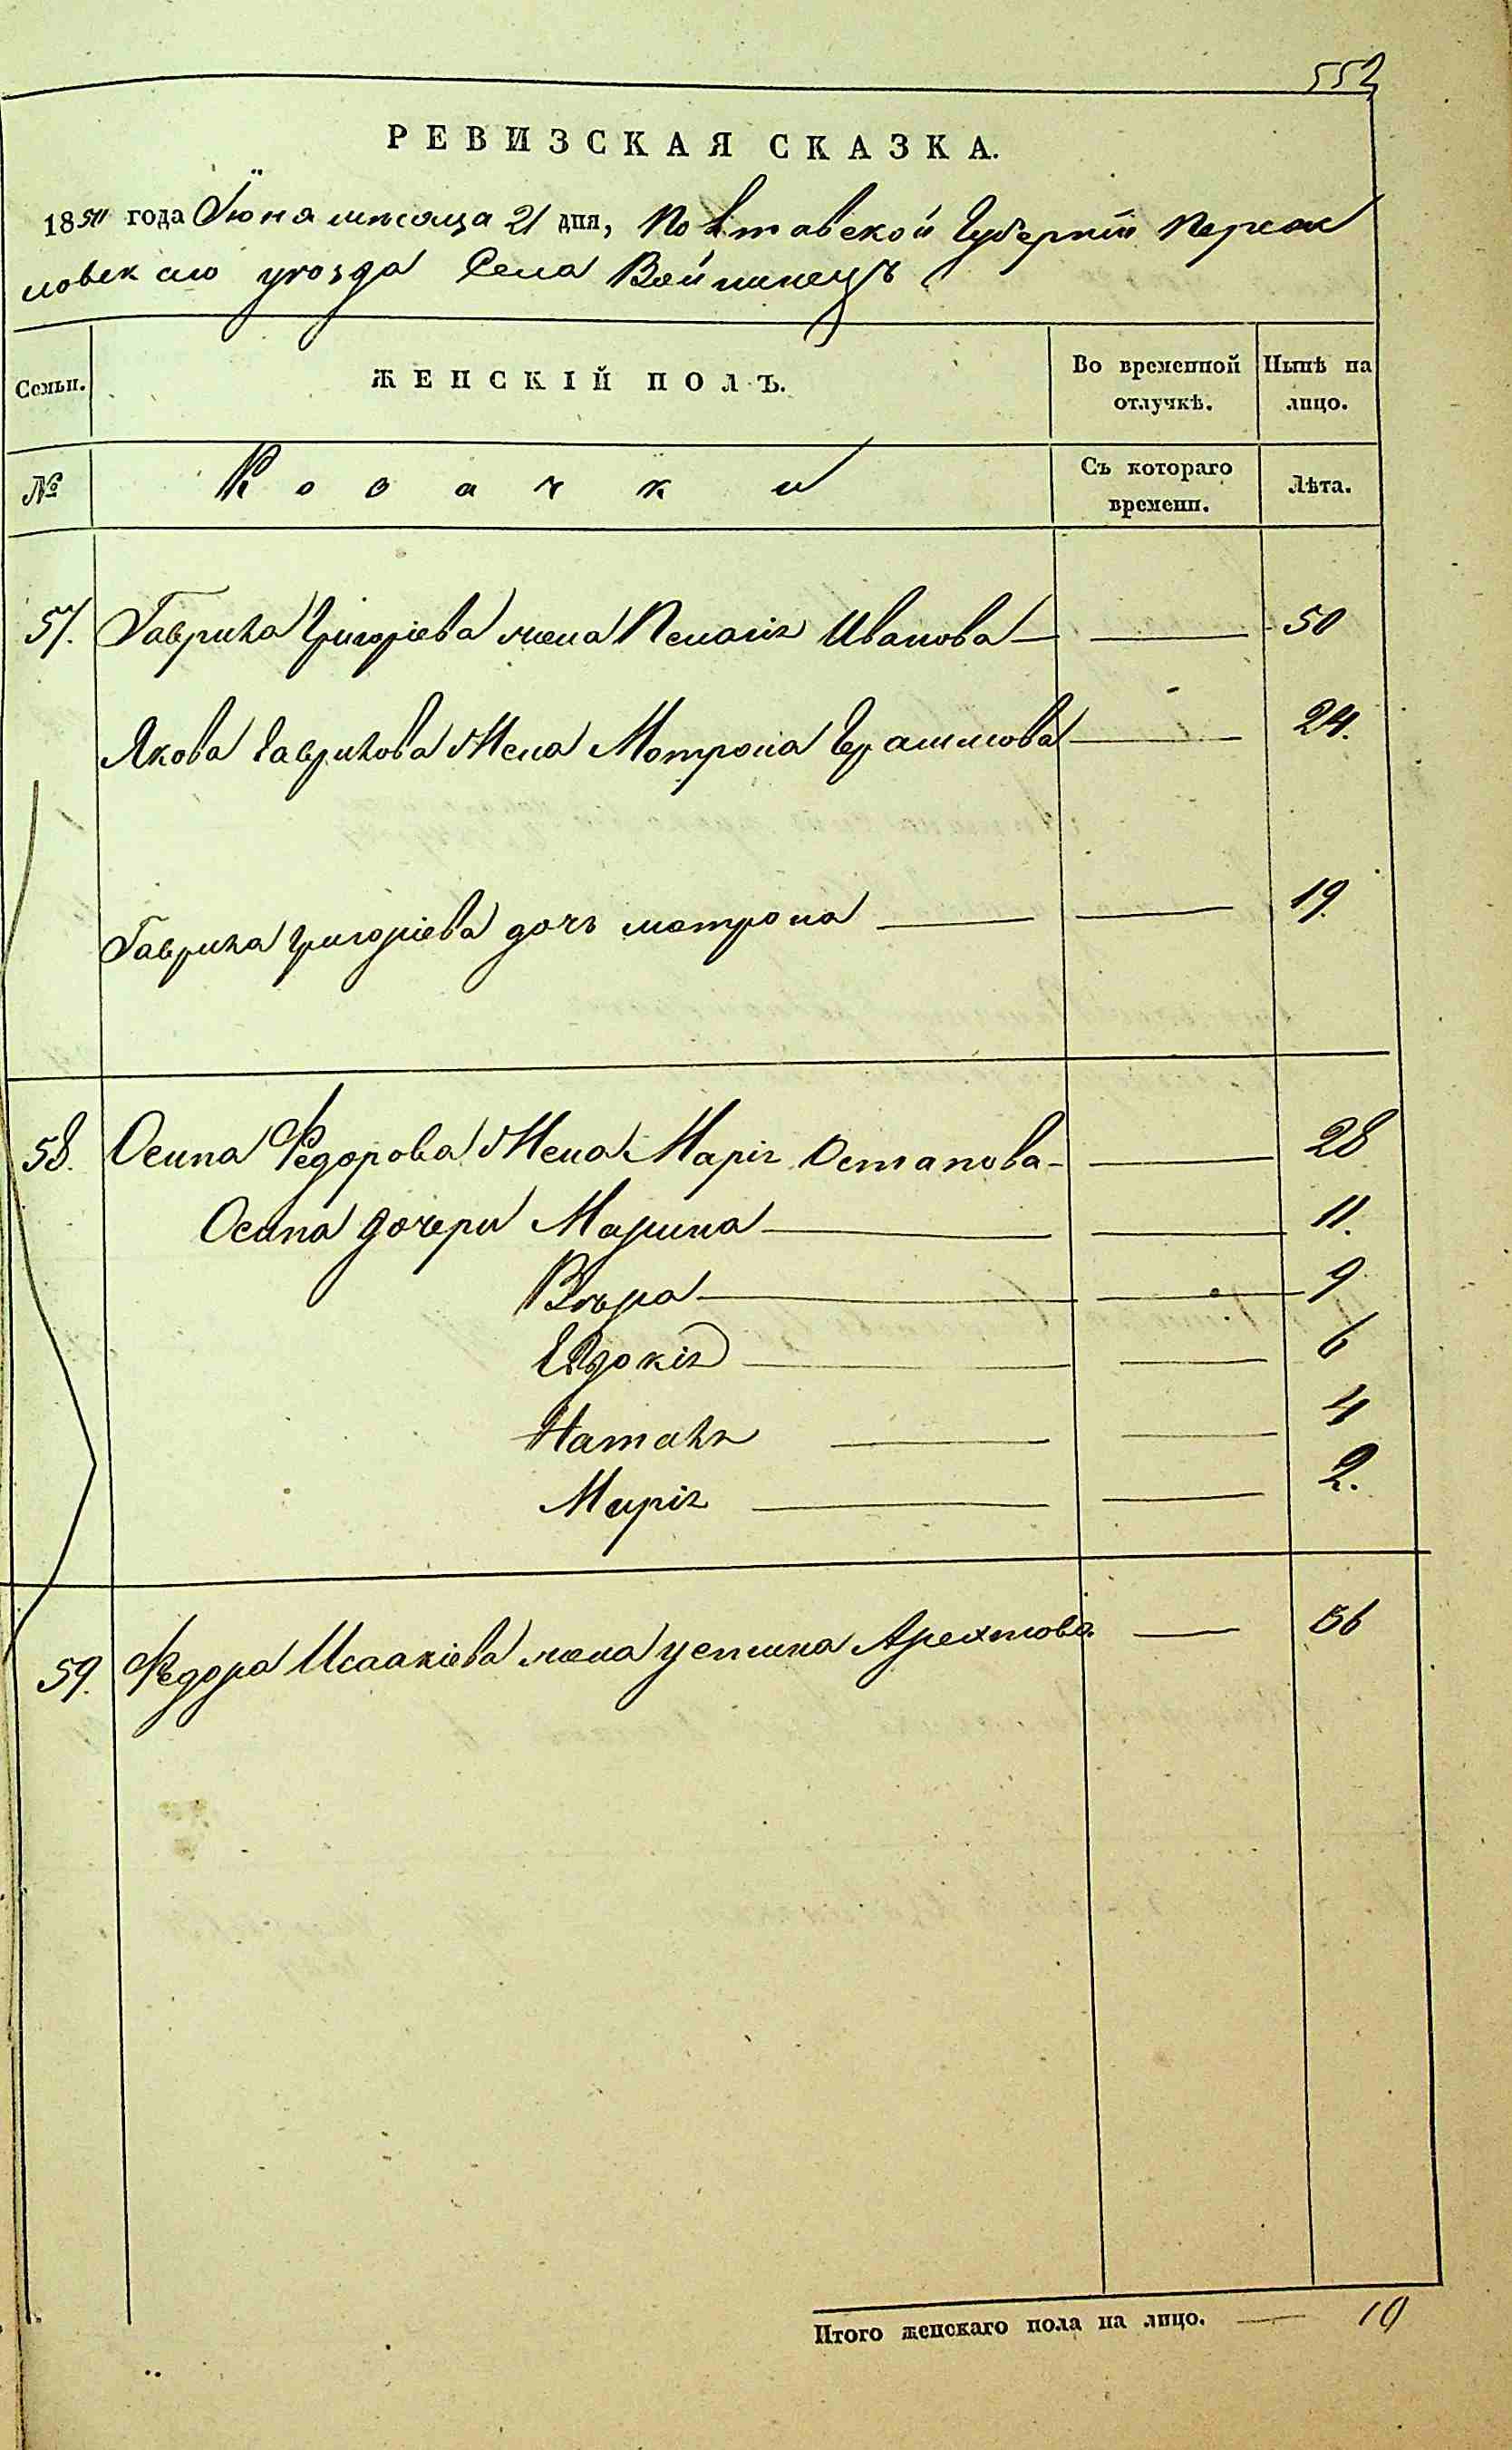 552
РЕВИЗСКАЯ СКАЗКА.
1850 года Іюня мѣсяца 21 дня, Полтавской Губерніи Переяс
ловскаго уѣзда Села Войтовецъ
Семьи. ЖЕНСКІЙ ПОЛЪ. Во временной отлучкѣ. Нынѣ на лицо.
№ Козачки Съ котораго времени. Лѣта.
57. Гаврила Григорієва жена Пелагія Иванова — — 50
Якова Гаврилова Жена Мотрона Герасимова — 24.
Гаврила Григорієва дочь мотрона — — 19.
58. Осипа Федорова Жена Марія Остапова — — 28
Осипа дочери Марина — — 11.
Вѣра — — 9
Евдокія — — 6
Наталія — — 4
Марія — — 2.
59. Федора Исаакієва жена устина — 56
Итого женскаго пола на лицо. — 10